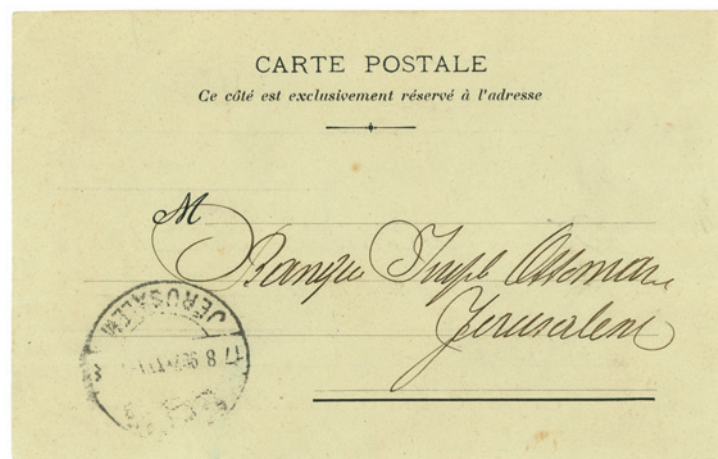 CARTE POSTALE
Ce côté est exclusivement réservé à l'adresse
M
Banque Imple Ottomane
Jerusalem
JERUSALEM
17 8